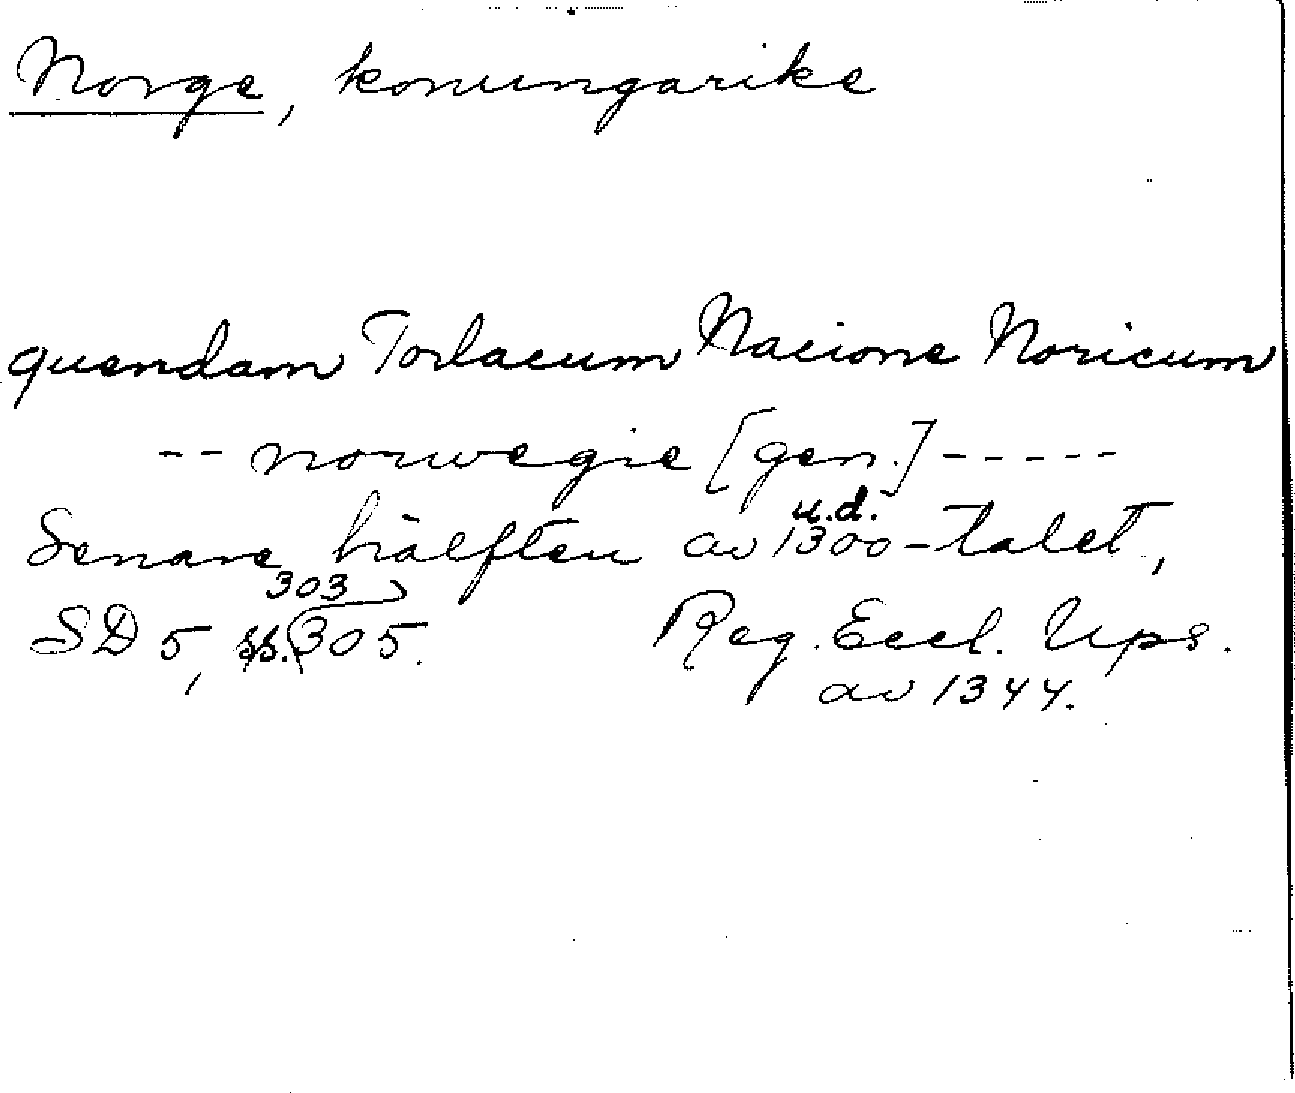 Norge, konungarike
quendam Torlacum Nacione Noricum
-- norwegie [gen.] -----
u.d.
Senare hälften av 1300-talet,
303
SD 5, ss. 305. Reg. Eccl. Ups.
av 1344.